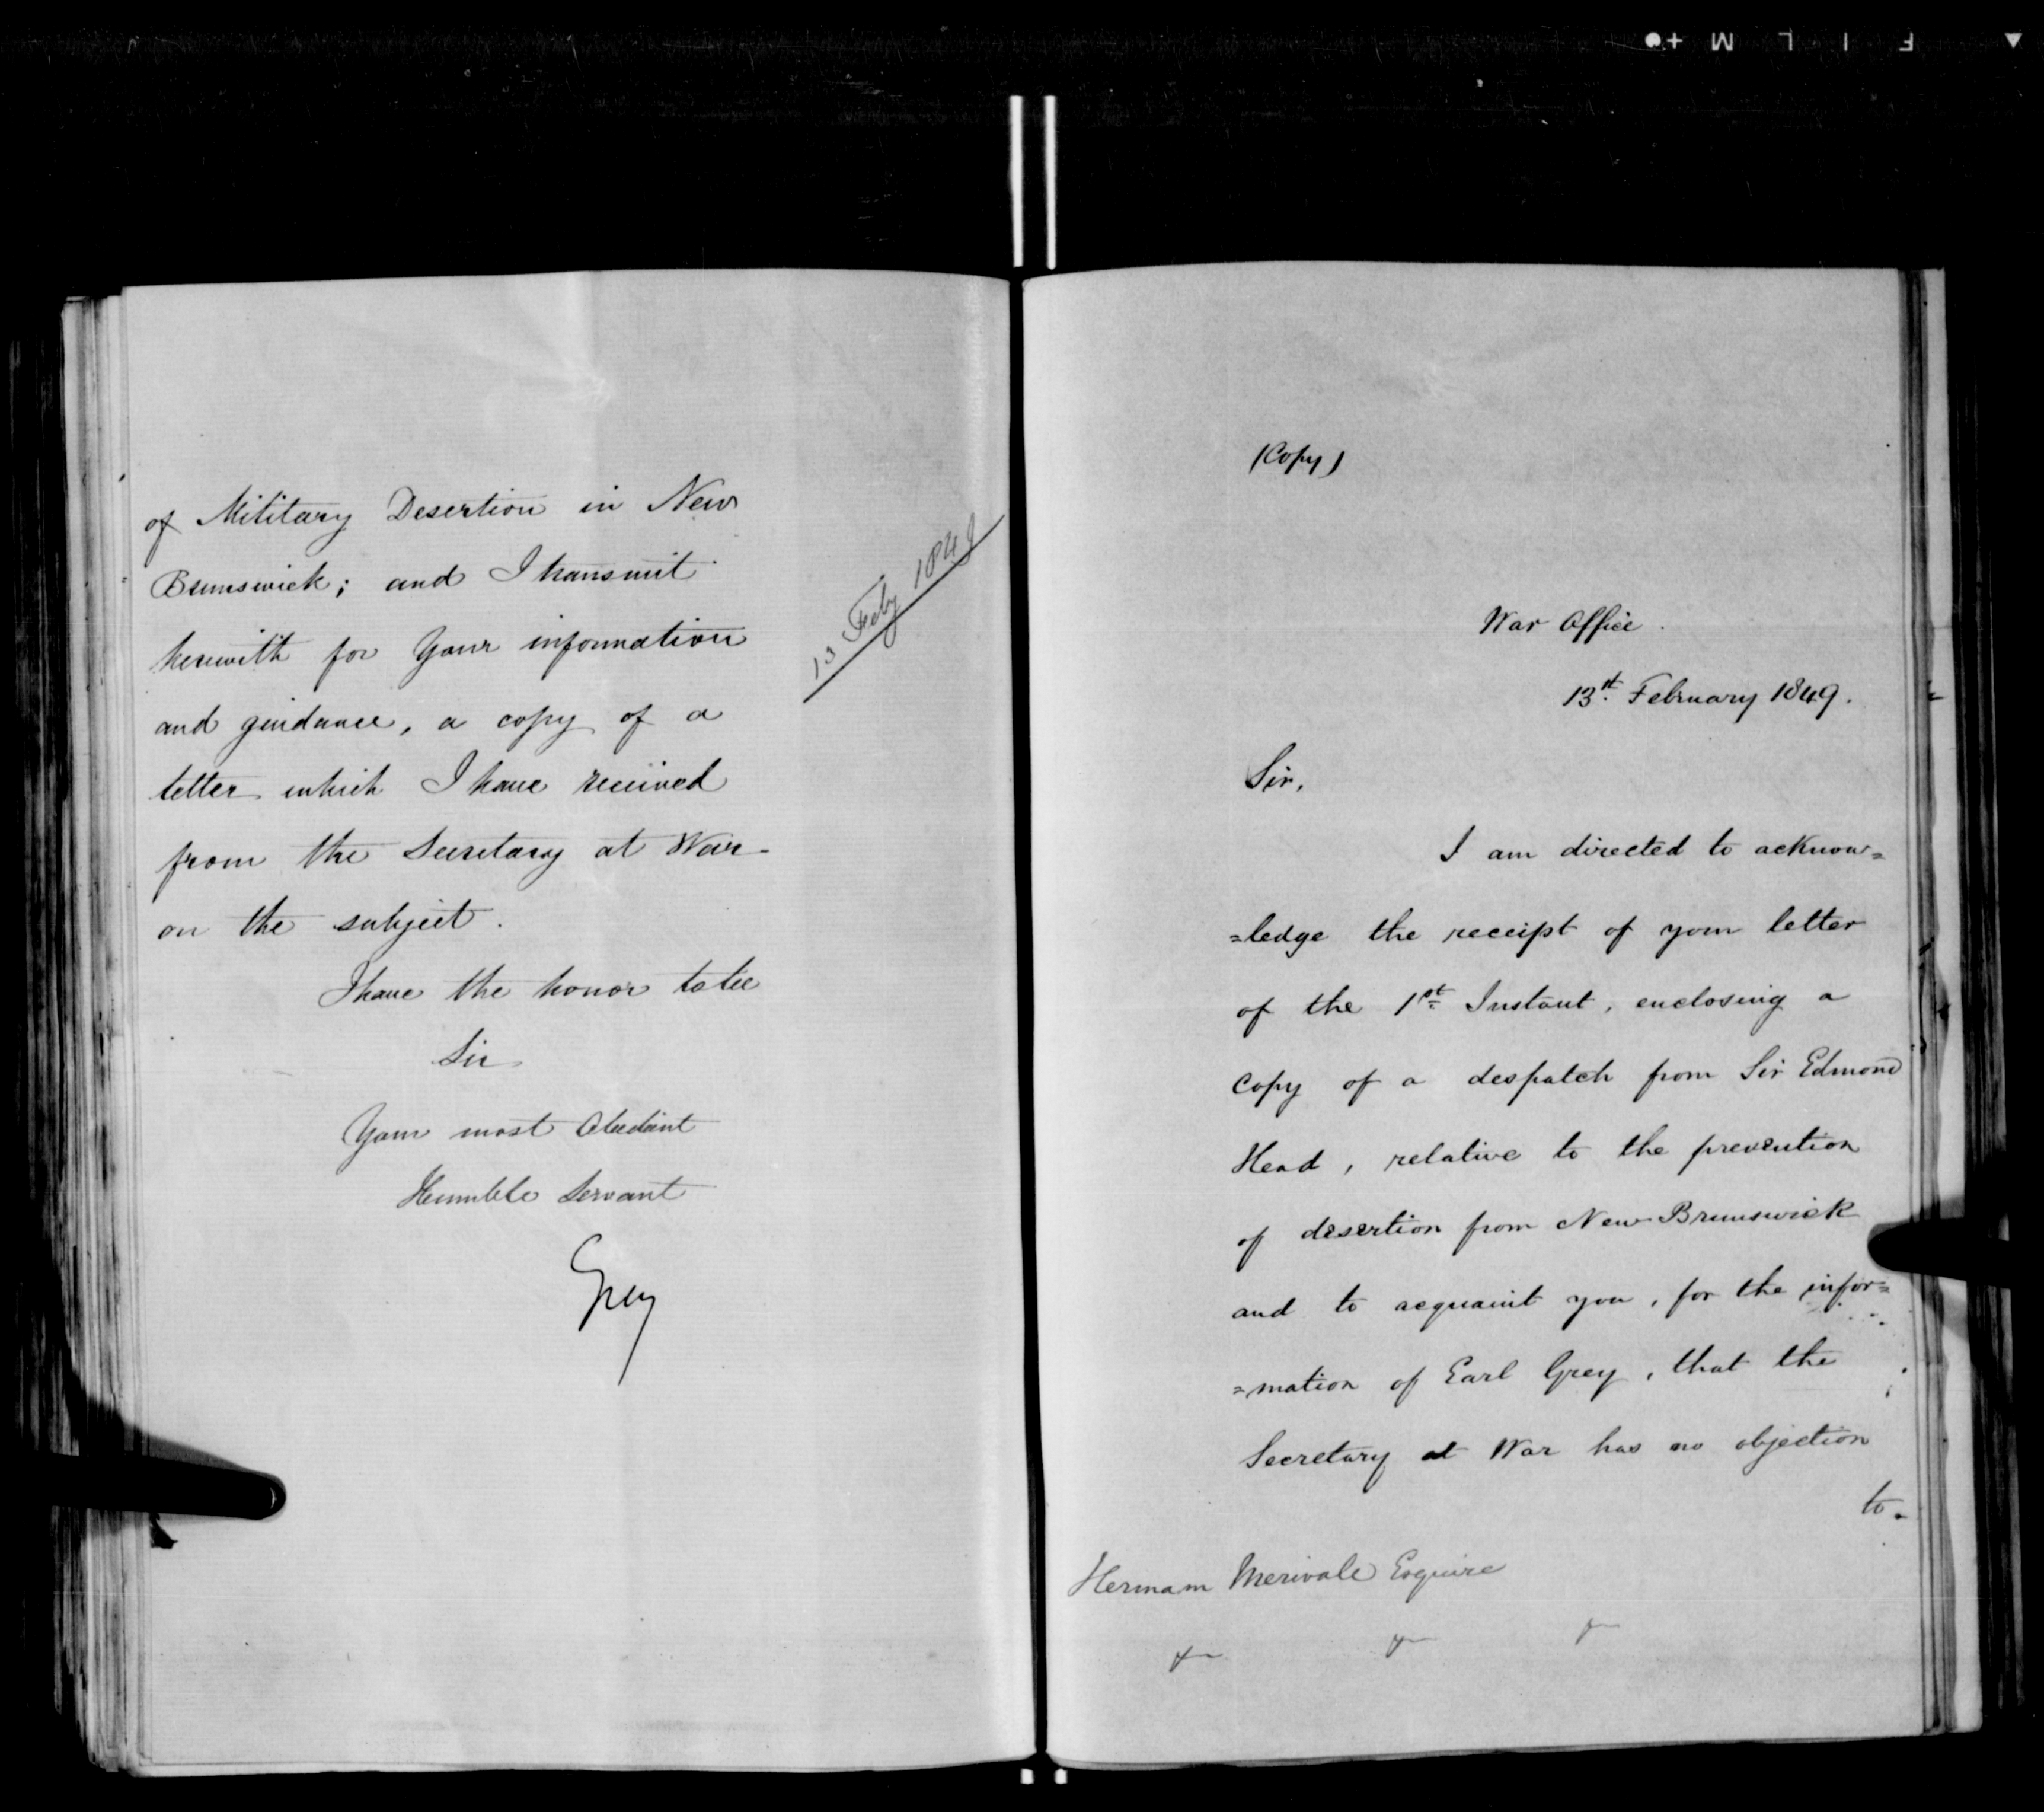 of Military Desertion in New
Brunswick; and I transmit
herewith for Your information
and guidance, a copy of a
letter which I have received
from the Secretary at War
on the subject.
I have the honor to be
Sir
Your most Obedient
Humble Servant
Grey
13 Feby 1849
(Copy)
War Office.
13th February 1849.
Sir,
I am directed to acknow=
=ledge the receipt of your letter
of the 1st Instant, enclosing a
Copy of a despatch from Sir Edmond
Head, relative to the prevention
of desertion from New Brunswick
and to acquaint you, for the infor=
=mation of Earl Grey, that the
Secretary at War has no objection
to.
Hermam Merivale Esquire
F I L M